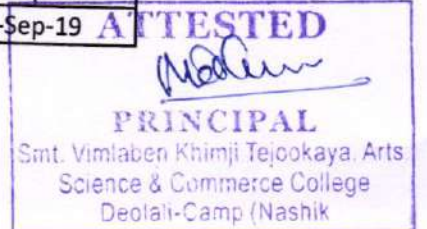 -Sep-19
ATTESTED
PRINCIPAL
Smt. Vimlaben Khimji Tejookaya, Arts
Science & Commerce College
Deolali-Camp (Nashik